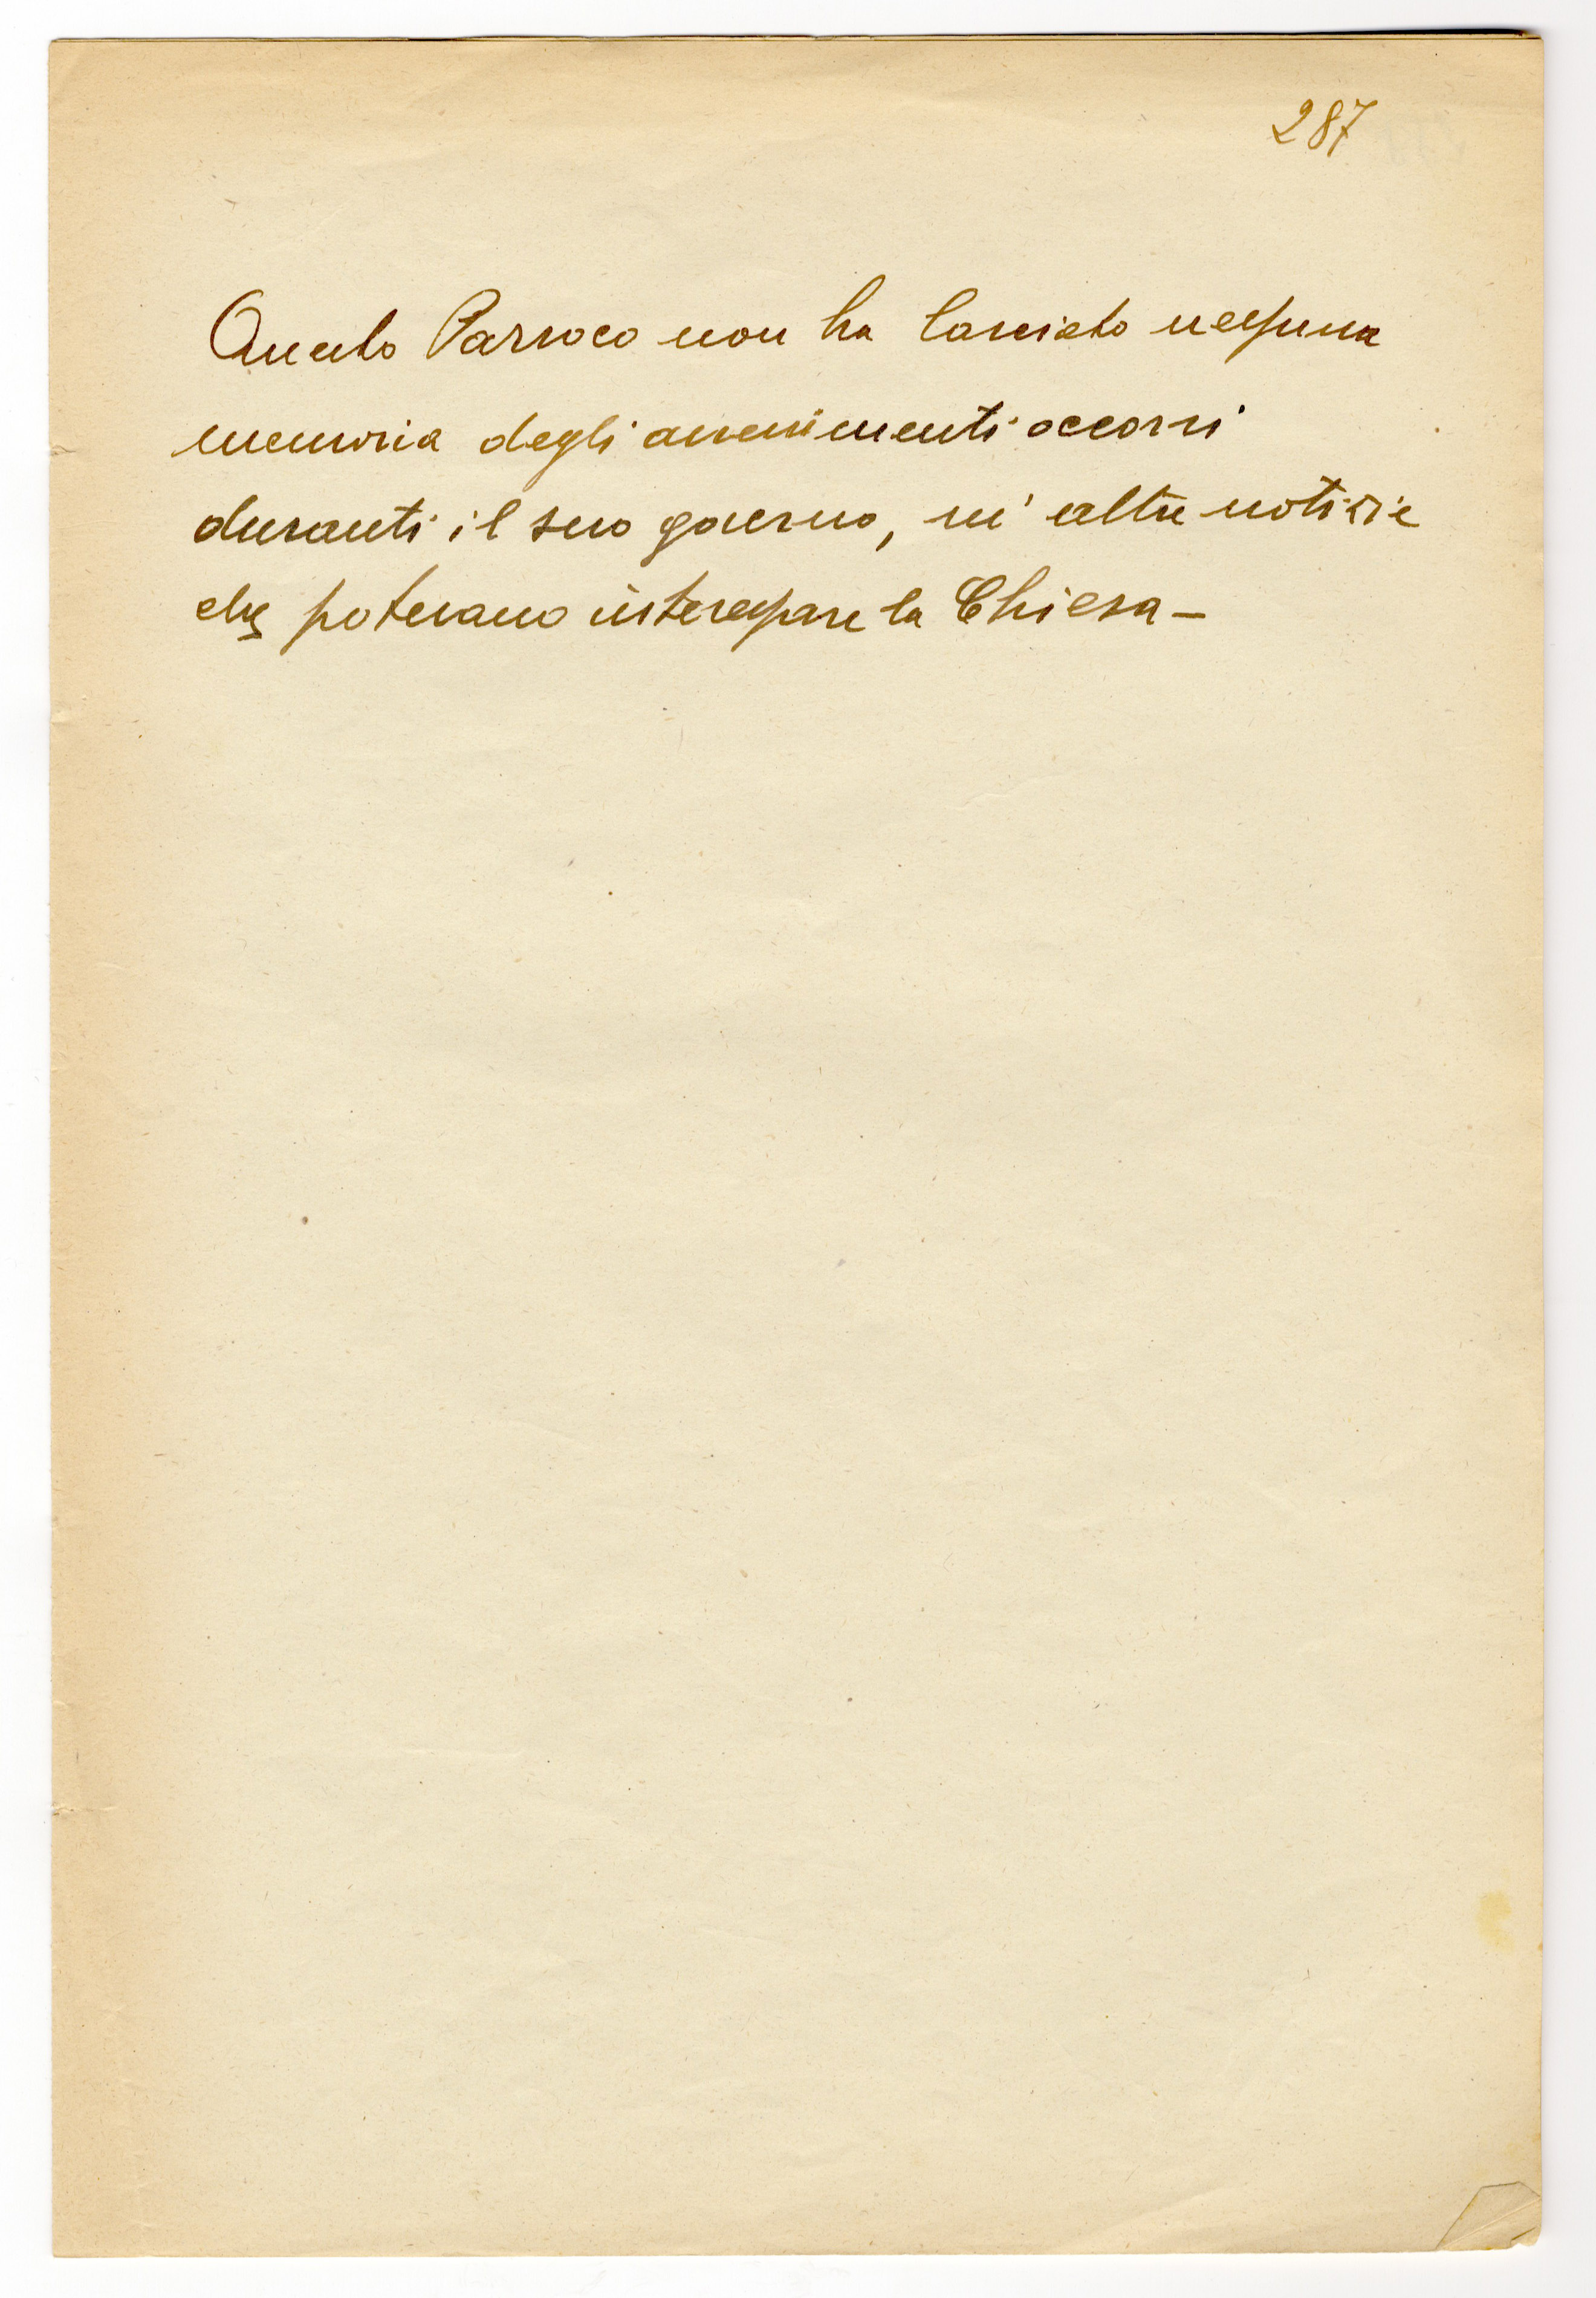 287
Questo Parroco non ha lasciato nessuna
memoria degli avvenimenti occorsi
duranti il suo governo, ni altre notizie
che potevano interessare la Chiesa –